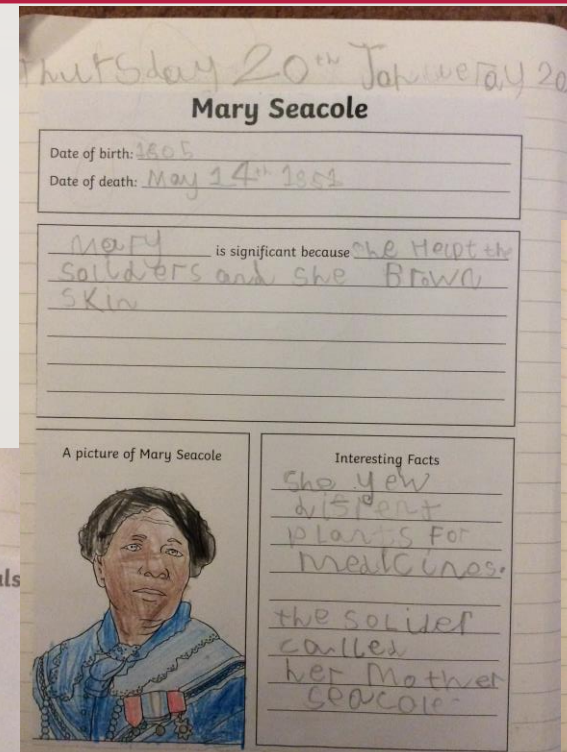 Thursday 20th Janueray 20
Mary Seacole
Date of birth: 1805
Date of death: May 14th 1881
Mary is significant because she Helpt the
soildiers and she Brown
skin
A picture of Mary Seacole
Interesting Facts
she yew
difrent
plants for
medicines.
the solider
called
her Mother
seacole
als